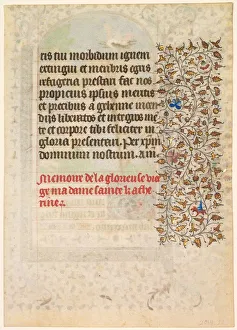 tis tui morbidum ignem
extingui et membris egris
refugeria prestari fac nos
propiciis ipsius meritis
et precibus a gehenne incen
diis liberatos et integros men
te et corpore tibi feliciter in
gloria presentari. Per xpm
dominum nostrum. am̄.
Memoire de la glorieuse vier
ge ma dame sainte kathe
rine.